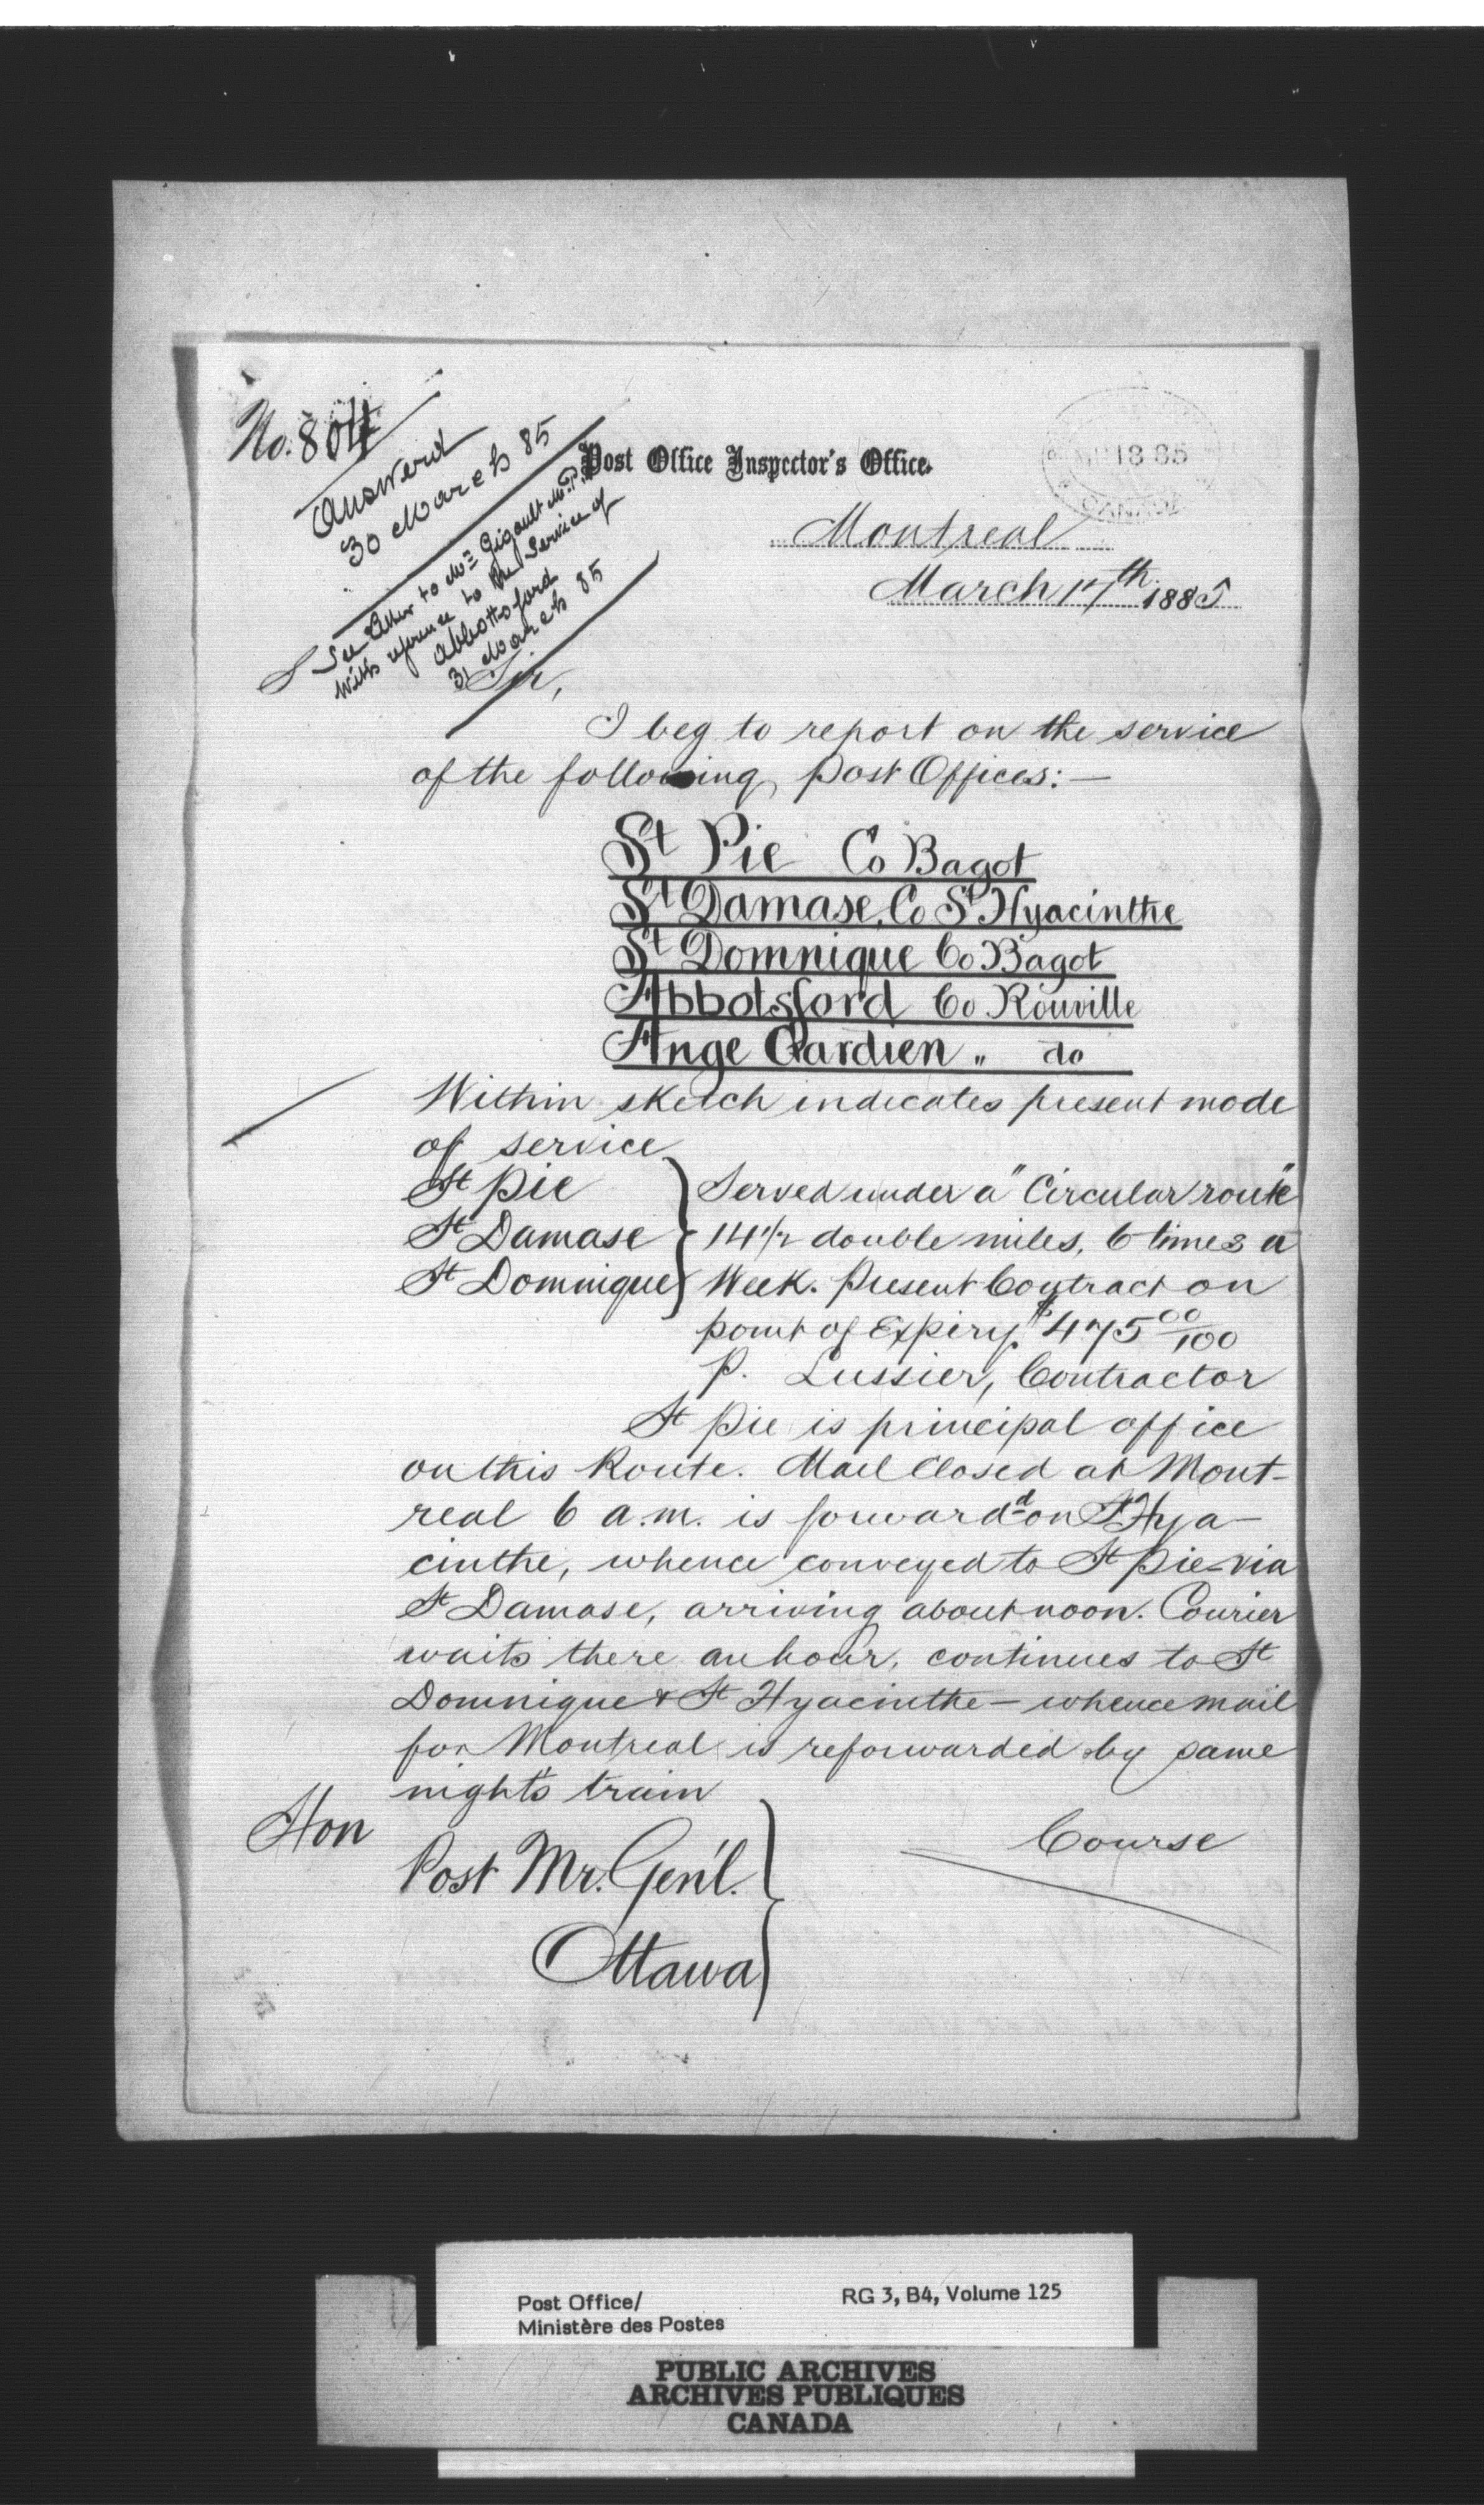 No. 804
Answerd
30 March 85
See letter to Mr Gigault M.P.
with reference to the service of
Abbottsford
31 March 85
Post Office Inspector's Office.
18 85
CANADA
Montreal
March 17th 1885
Sir,
I beg to report on the service
of the following Post Offices:—
St Pie Co Bagot
St Damase, Co St Hyacinthe
St Domnique Co Bagot
Abbotsford Co Rouville
Ange Gardien " do
Within sketch indicates present mode
of service
St Pie } Served under a "Circular route"
St Damase } 14 1/2 double miles, 6 times a
St Domnique } Week. Present Contract on
point of Expiry. $475 00/100
P. Lussier, Contractor
St Pie is principal office
on this Route. Mail Closed at Mont-
real 6 a.m. is forwardd on St Hya-
cinthe, whence conveyed to St Pie via
St Damase, arriving about noon. Courier
waits there an hour, continues to St
Domnique & St Hyacinthe — whence mail
for Montreal is reforwarded by same
night's train
Hon
Post Mr. Gen'l. }
Ottawa
Course
Post Office/
Ministère des Postes
RG 3, B4, Volume 125
PUBLIC ARCHIVES
ARCHIVES PUBLIQUES
CANADA